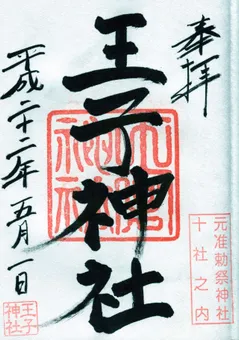 奉拝
元准勅祭神社
十社之内
王子神社
王子神社
平成二十二年五月一日
王子
神社